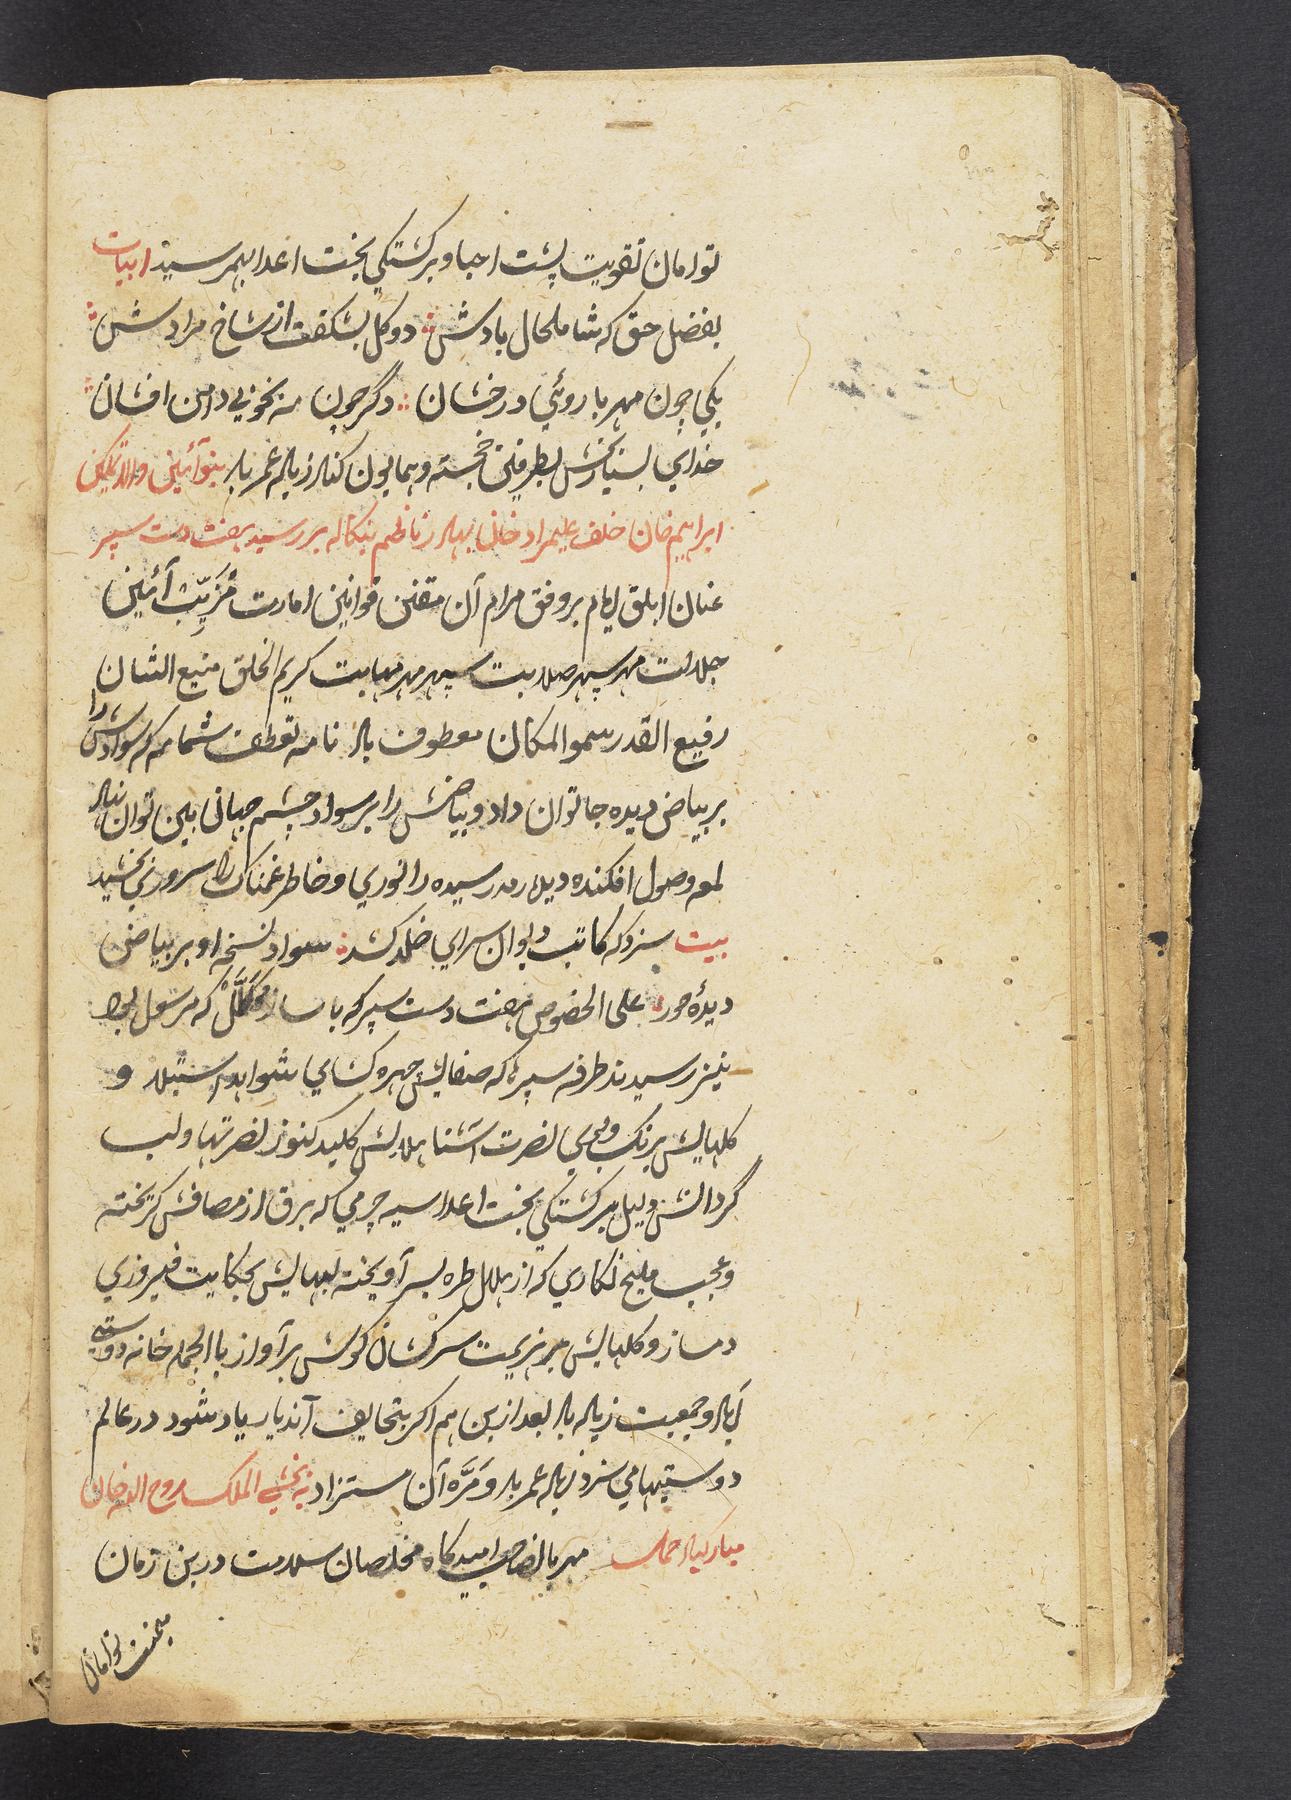 توامان تقویت پشت احبا و برکشتکی بخت اعدا بهم رسید ابیات
بفضل حق که شامل حال بادش دو کل بشکفت از شاخ مرادش
یکی چون مهر با روئی درخشان دکر چون مه بخوبی دامن افشان
خدای بسیاربخش بطرفین خجسته و همایون کناد زیاده عمر باد
ابراهیم خان خلف علیمراد خان بهادر ناظم بنکاله در رسید هفت دست سپر
عنان ابلق ایام بر وفق مرام آن مقنن قوانین امارت مزیب آئین
جلادت مهر سپهر صلابت سپهر مهر مهابت کریم الخلق منیع الشان
رفیع القدر سمو المکان معطوف باد نامه تعطف شمامه که سوادش را
بر بیاض دیده جا توان داد و بیاضش را بر سواد چشم جهان بین توان نهاد
لمعه وصول افکنده دیده رمد رسیده را نوری و خاطر غمناک را سروری بخشید
بیت سزد که کاتب دیوان سرای خلد کشد سواد نسخه او بر بیاض
دیدهٔ حور علی الخصوص هفت دست سپر که با ساز مکلل که مرسول بود
نیز رسیدند طرفه سپری که صفایش چهره کشای شواهد استیلا و
کلهایش برنک و بوی نصرت آشنا هلالش کلید کنوز نصرتها و لب
کردانش دلیل برکشتکی بخت اعدا سیه جرمی که برق از مصافش کریخته
و عجب ملیح نکاری که از هلال طره بسر آویخته لبهایش بحکایت فیروزی
دمساز و کلهایش بر هزیمت سرکشان کوش بر آواز با الجمله خانه دوستی
آباد و جمعیت زیاده باد بعد ازین هم اکر بتحایف آندیار یاد شود در عالم
دوستیها می سزد زیاده عمر باد و مره آن مستزاد به بخشی الملک روح الله خان
مبارکباد مهربان صاحب امیدکاه مخلصان سلامت درین زمان
میمنت توامان